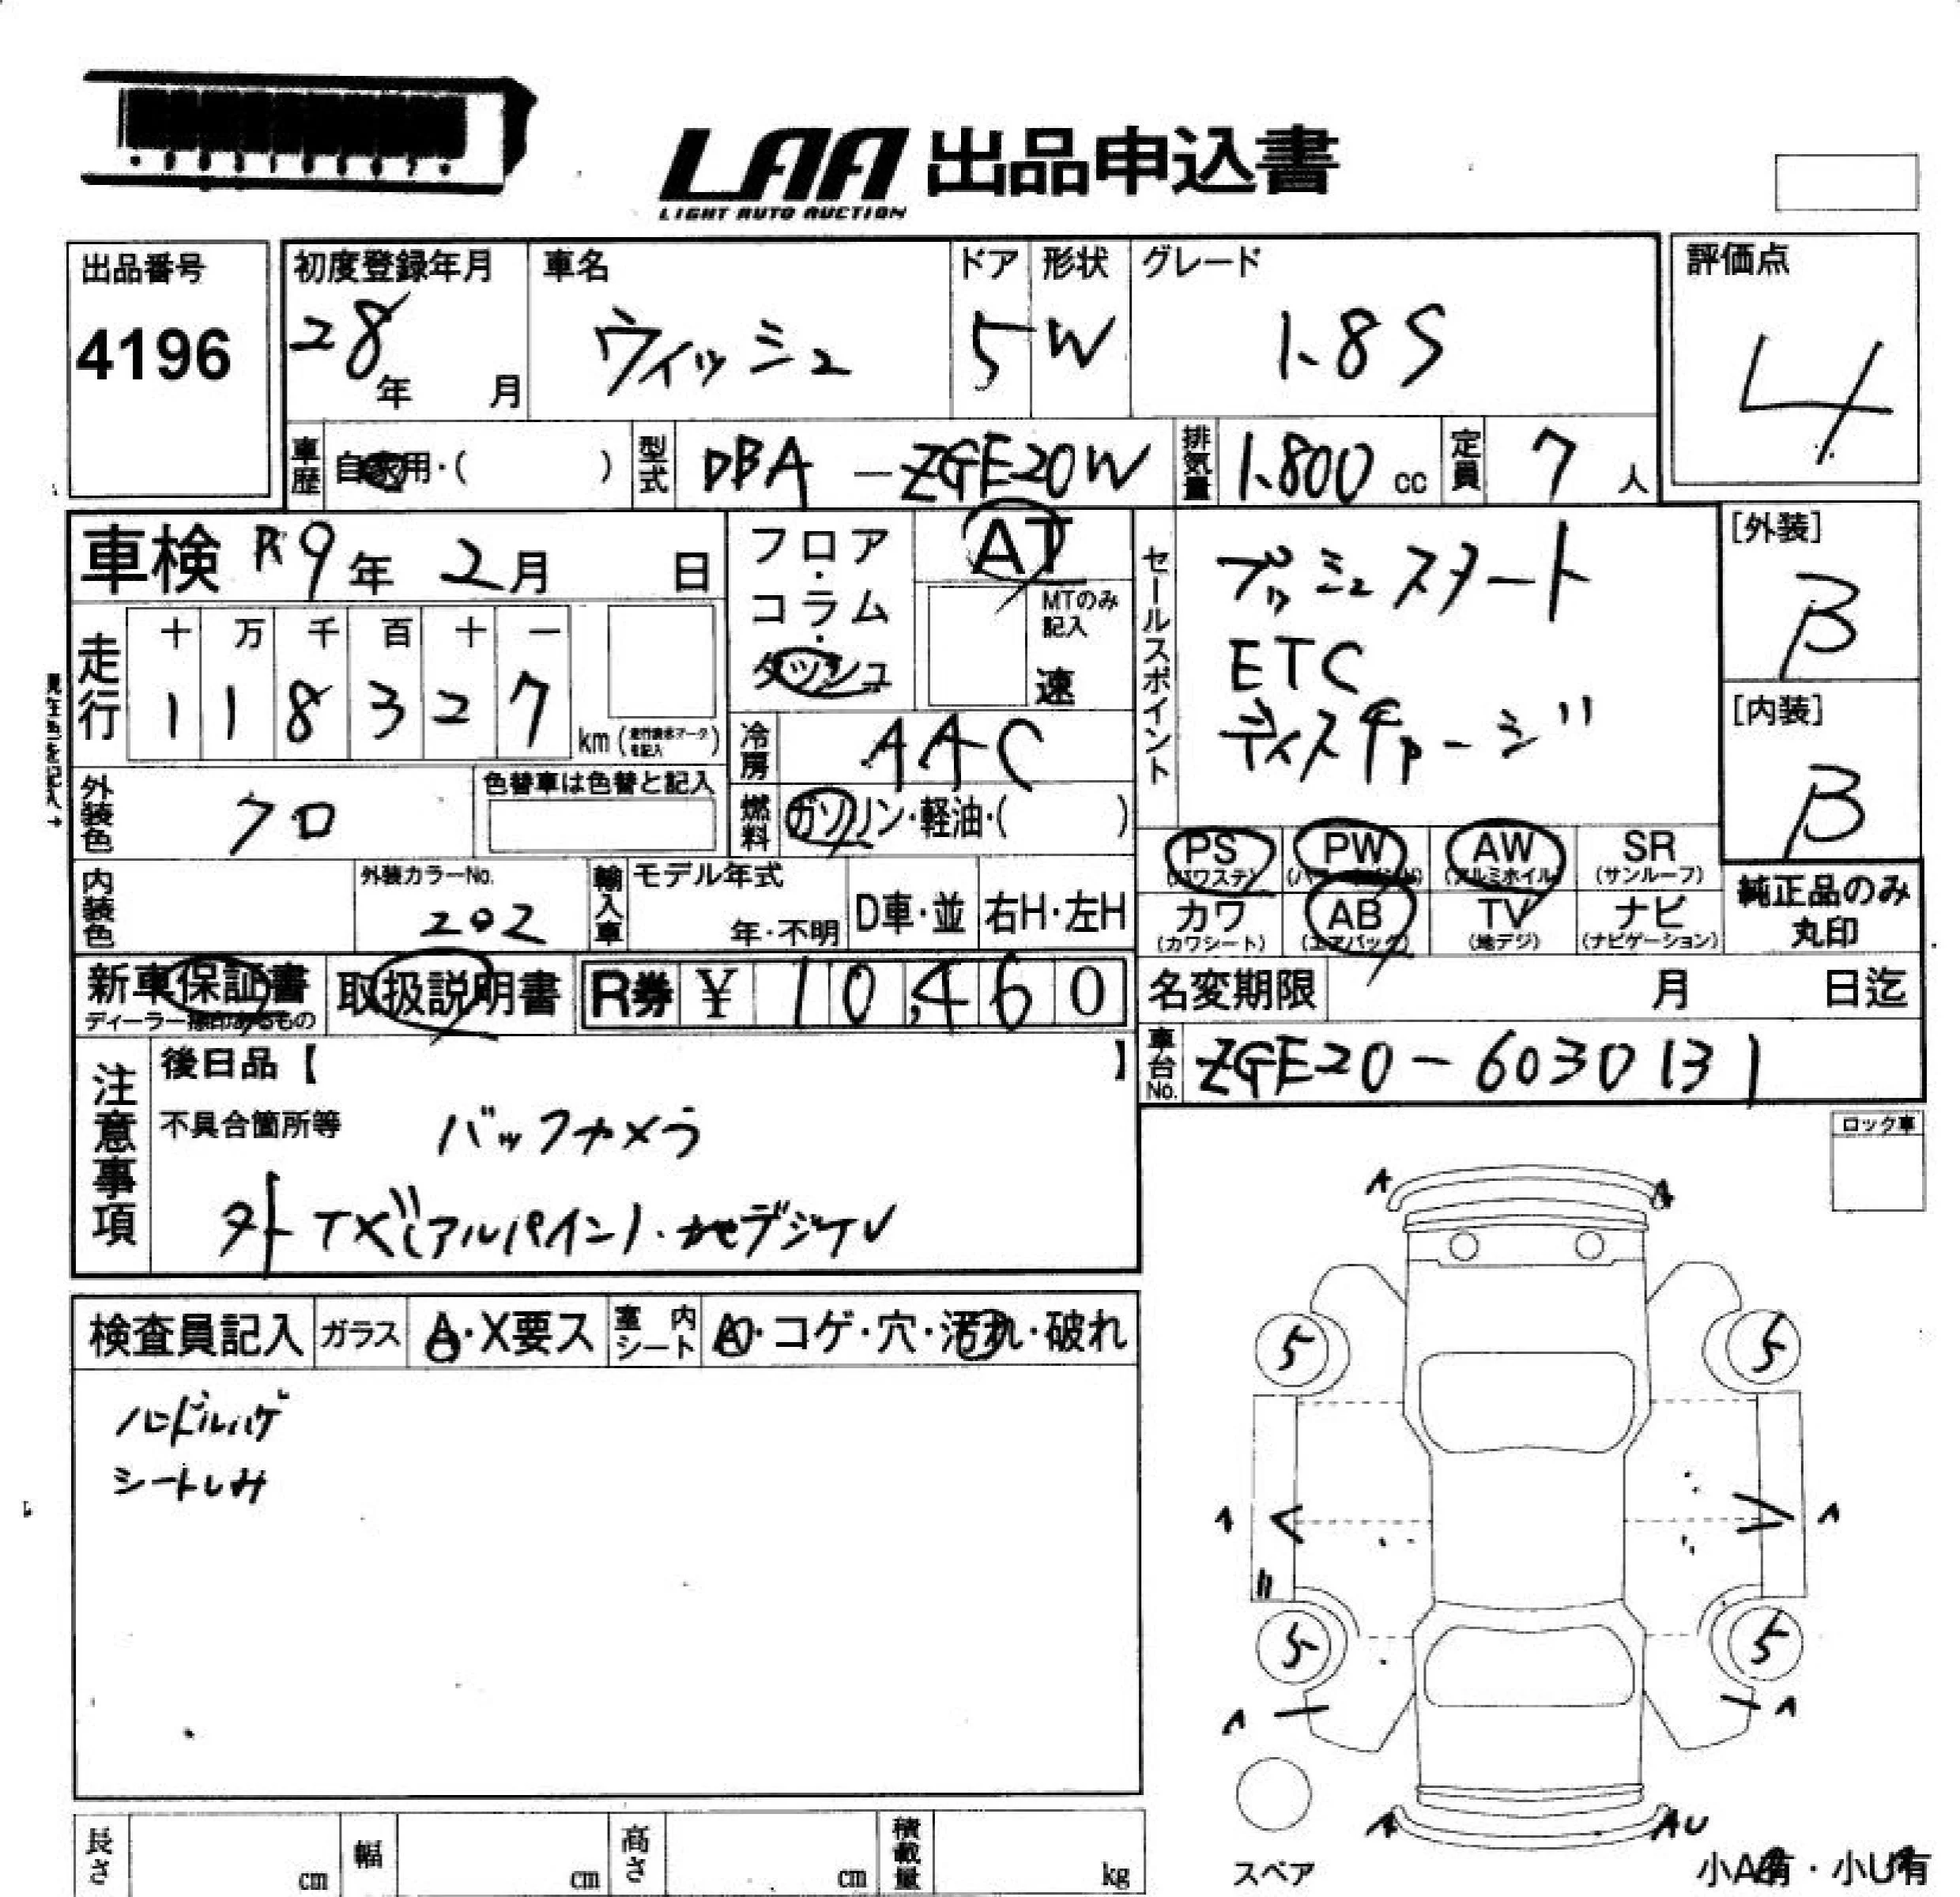 LAA 出品申込書
LIGHT AUTO AUCTION
出品番号
4196
初度登録年月
28年 月
車名
ウィッシュ
ドア
5
形状
W
グレード
1.8S
評価点
4
車歴 自家用・( )
型式 DBA-ZGE20W
排気量 1.800 cc
定員 7 人
車検 R9年 2月 日
フロア・コラム・ダッシュ
AT
MTのみ記入
速
セールスポイント
プッシュスタート
ETC
ディスチャージ
[外装]
B
[内装]
B
走行
十 万 千 百 十 一
1 1 8 3 2 7 km
冷房 AAC
外装色 クロ
色替車は色替と記入
燃料 ガソリン・軽油・( )
PS (パワステ)
PW
AW (アルミホイル)
SR (サンルーフ)
カワ (カワシート)
AB (エアバック)
TV (地デジ)
ナビ (ナビゲーション)
純正品のみ丸印
内装色
外装カラーNo.
202
輸入車 モデル年式
年・不明
D車・並
右H・左H
新車保証書
取扱説明書
R券 ¥ 10,460
名変期限 月 日迄
車台No. ZGE20-6030131
注意事項
後日品【 】
不具合箇所等 バックカメラ
外 TXビ(アルパイン)・地デジTV
ロック車
検査員記入
ガラス A・X要ス
室内シート A・コゲ・穴・汚れ・破れ
ハンドルハゲ
シートしみ
A A
5 5
A A
5 5
A A
A AU
スペア
小A有・小U有
長さ cm
幅 cm
高さ cm
積載量 kg